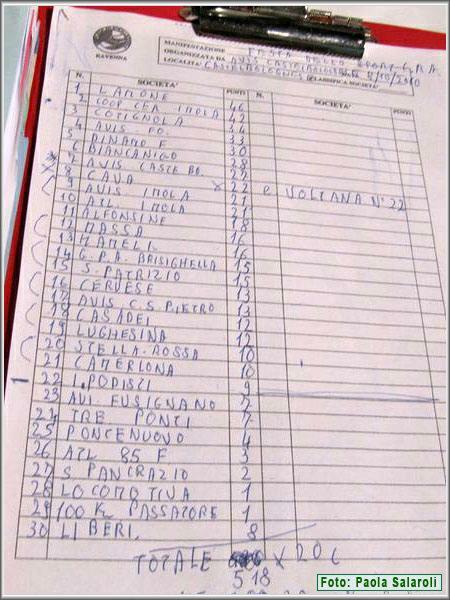 RAVENNA
MANIFESTAZIONE FESTA DELLO SPORT G.R.A.
ORGANIZZATA DA AVIS CASTELBOLOGNESE
LOCALITA' CASTELBOLOGNESE 8/10/2010
CLASSIFICA SOCIETA'
N. SOCIETA' PUNTI N. SOCIETA' PUNTI
1 LAMONE 46
2 COOP CEA IMOLA 42
3 COTIGNOLA 34
4 AVIS. FO. 33
5 AINAMO F 30
6 BIANCANIGO 28
7 AVIS CASTE BO. 27
8 CAVA X 22 e VOLTANA N° 22
9 AVIS IMOLA 21
10 ATL IMOLA 21
11 ALFONSINE 18
12 MASSA 16
13 MAMELI 16
14 G.P.A. BRISIGHELLA 15
15 S. PATRIZIO 15
16 CERVESE 13
17 AVIS C.S. PIETRO 13
18 CASADEI 12
19 LUGHESINA 12
20 STELLA ROSSA 10
21 CAMERLONA 10
22 I. PODISTI 9
23 AVI. FUSIGNANO 7
24 TRE PONTI 7
25 PONTENUOVO 4
26 ATL 85 F 3
27 S PANCRAZIO 2
28 LOCOMOTIVA 1
29 100 K PASSATORE 1
30 LIBERI 8
TOTALE X 20 C
518
Foto: Paola Salaroli